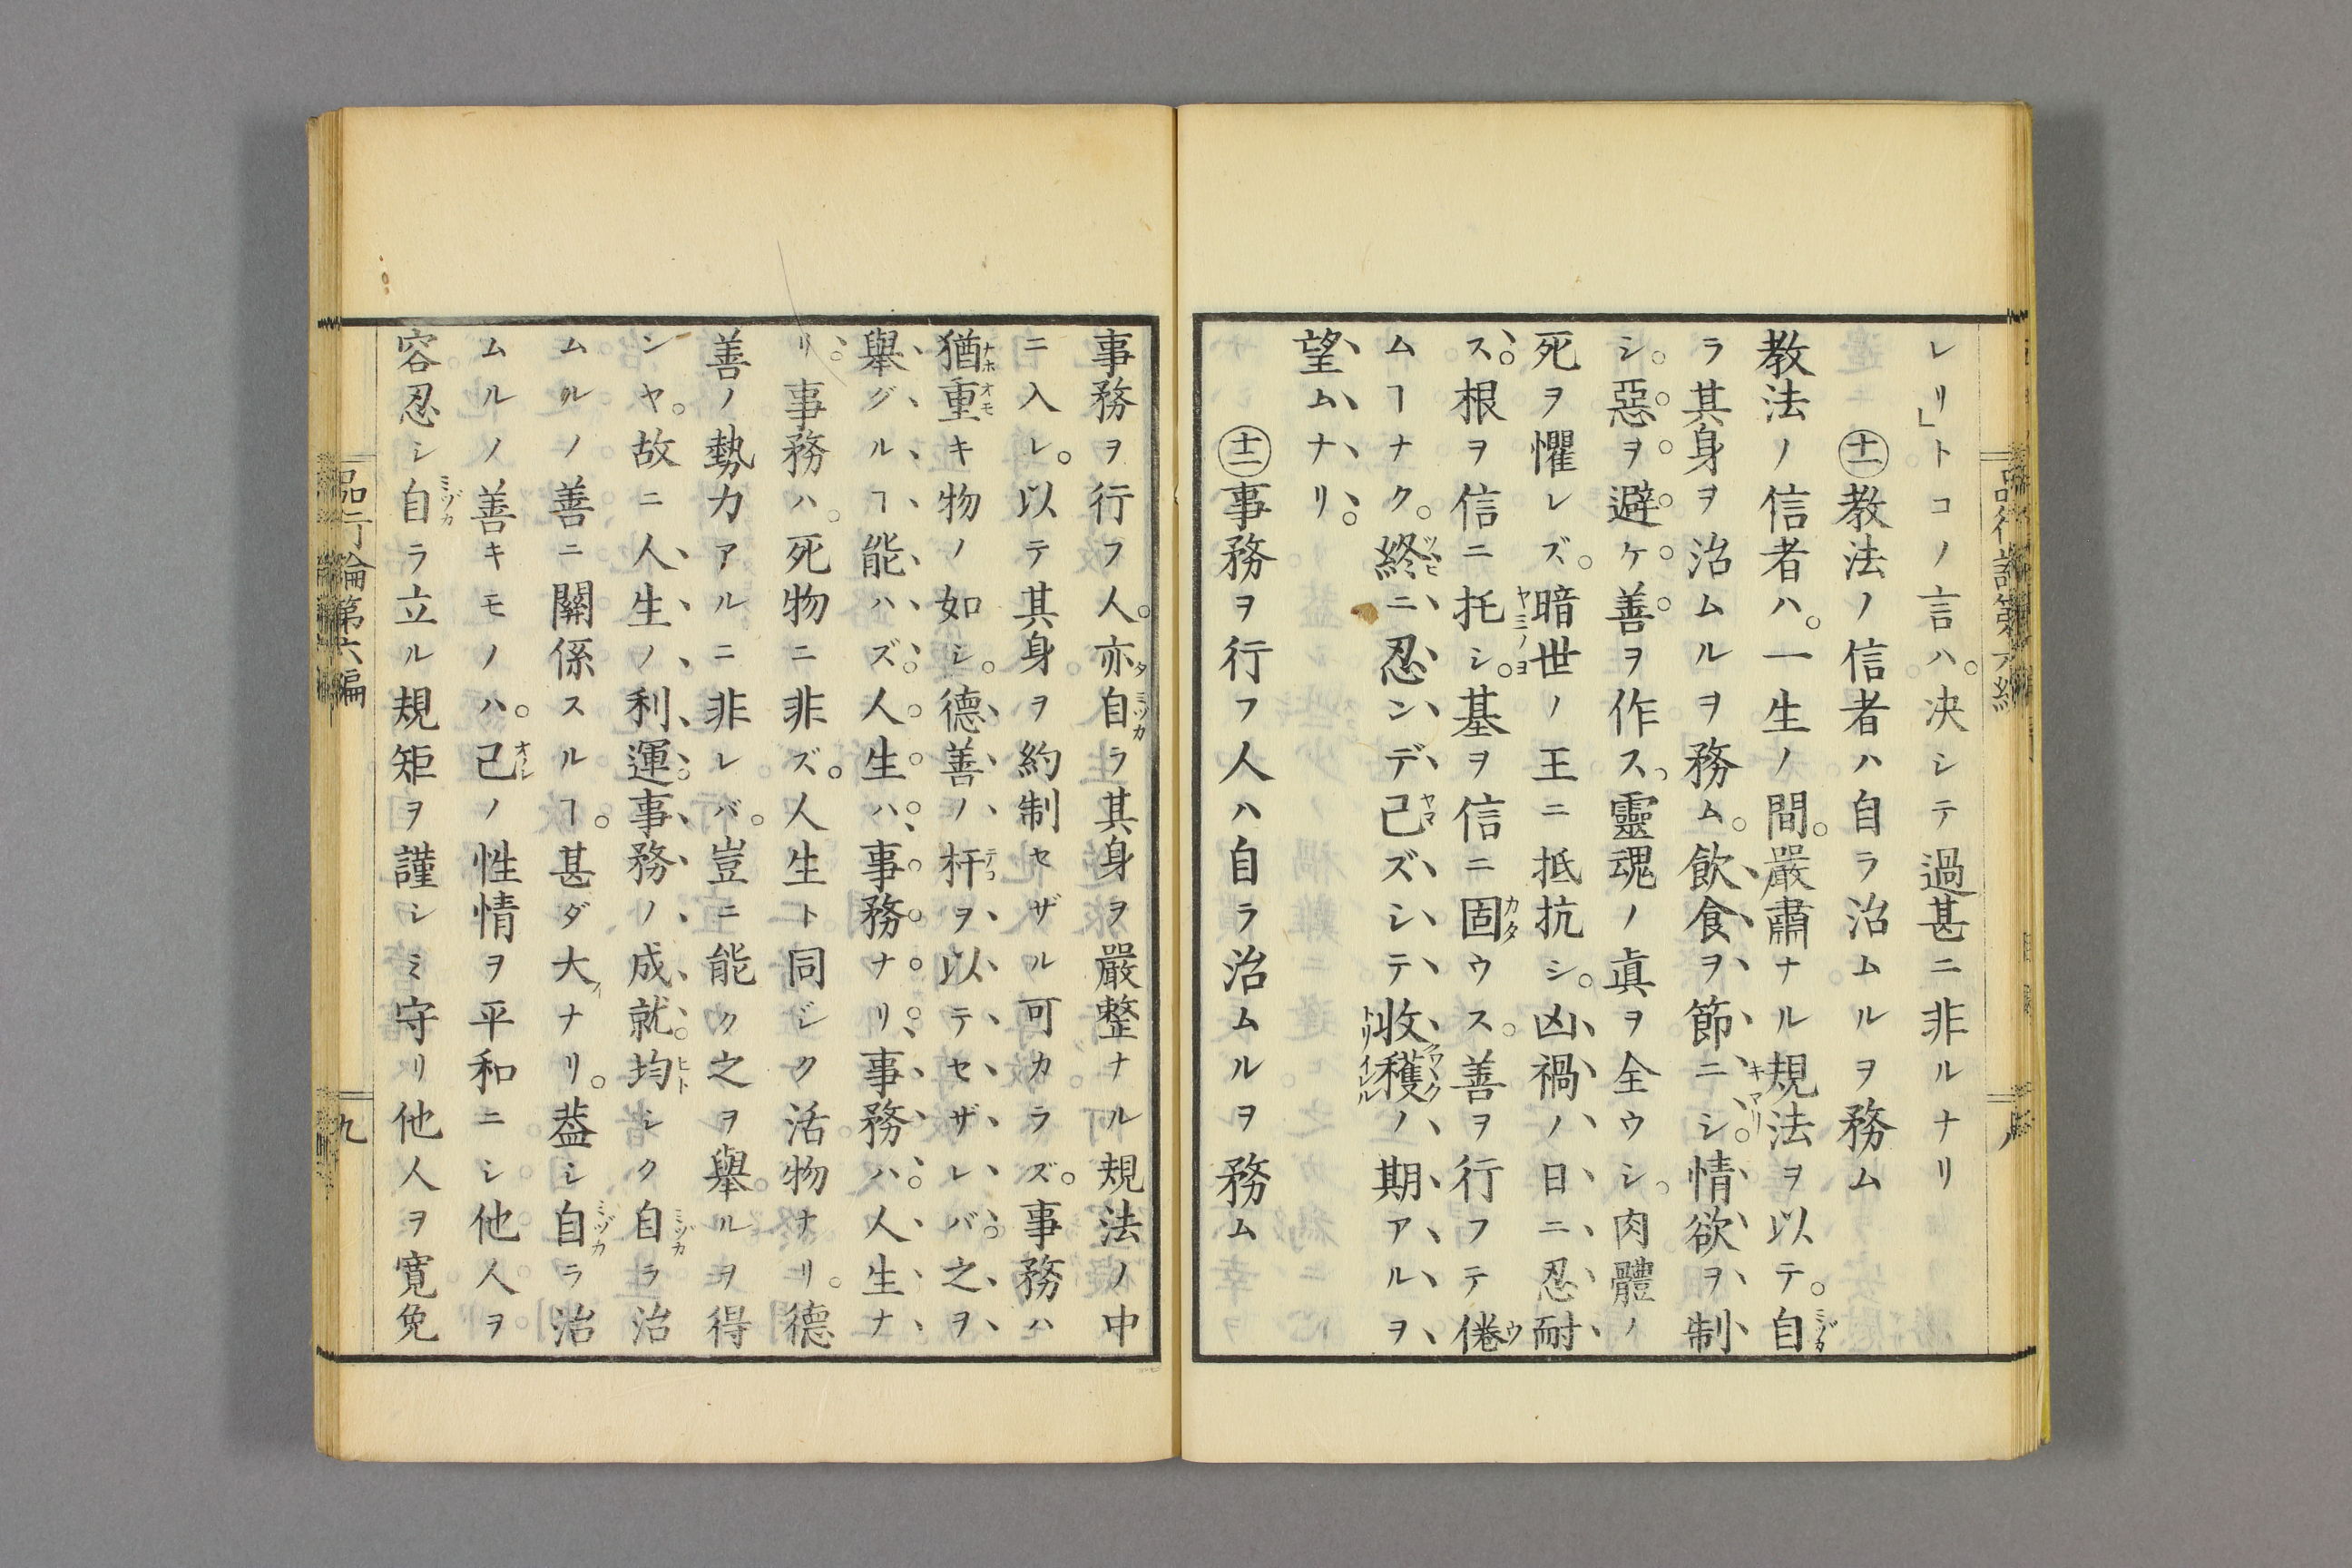 レリ」トコノ言ハ。決シテ過甚ニ非ルナリ
㊉一教法ノ信者ハ自ラ治ムルヲ務ム
教法ノ信者ハ。一生ノ間。嚴肅ナル規法ヲ以テ。自
ラ其身ヲ治ムルヲ務ム。飲食ヲ節ニシ。情欲ヲ制
シ。惡ヲ避ケ善ヲ作ス。靈魂ノ眞ヲ全ウシ。肉體ノ
死ヲ懼レズ。暗世ノ王ニ抵抗シ。凶禍ノ日ニ忍耐
ス。根ヲ信ニ托シ。基ヲ信ニ固ウス。善ヲ行フテ倦
ムヿナク。終ニ忍ンデ已ズシテ收穫ノ期アルヲ
望ムナリ。
㊉二事務ヲ行フ人ハ自ラ治ムルヲ務ム
事務ヲ行フ人。亦自ラ其身ヲ嚴整ナル規法ノ中
ニ入レ。以テ其身ヲ約制セザル可カラズ。事務ハ
猶重キ物ノ如シ。德善ノ杆ヲ以テセザレバ。之ヲ
擧グルヿ能ハズ。人生ハ事務ナリ。事務ハ。人生ナ
リ。事務ハ。死物ニ非ズ。人生ト同ジク活物ナリ。德
善ノ勢力アルニ非レバ。豈ニ能ク之ヲ擧。ルヲ得
ンヤ。故ニ人生ノ利運。事務ノ成就。均シク自ラ治
ムルノ善ニ關係スルヿ。甚ダ大ナリ。葢シ自ラ治
ムルノ善キモノハ。己ノ性情ヲ平和ニシ他人ヲ
容忍シ自ラ立ル規矩ヲ謹シミ守リ他人ヲ寛免
品行論第六編
九